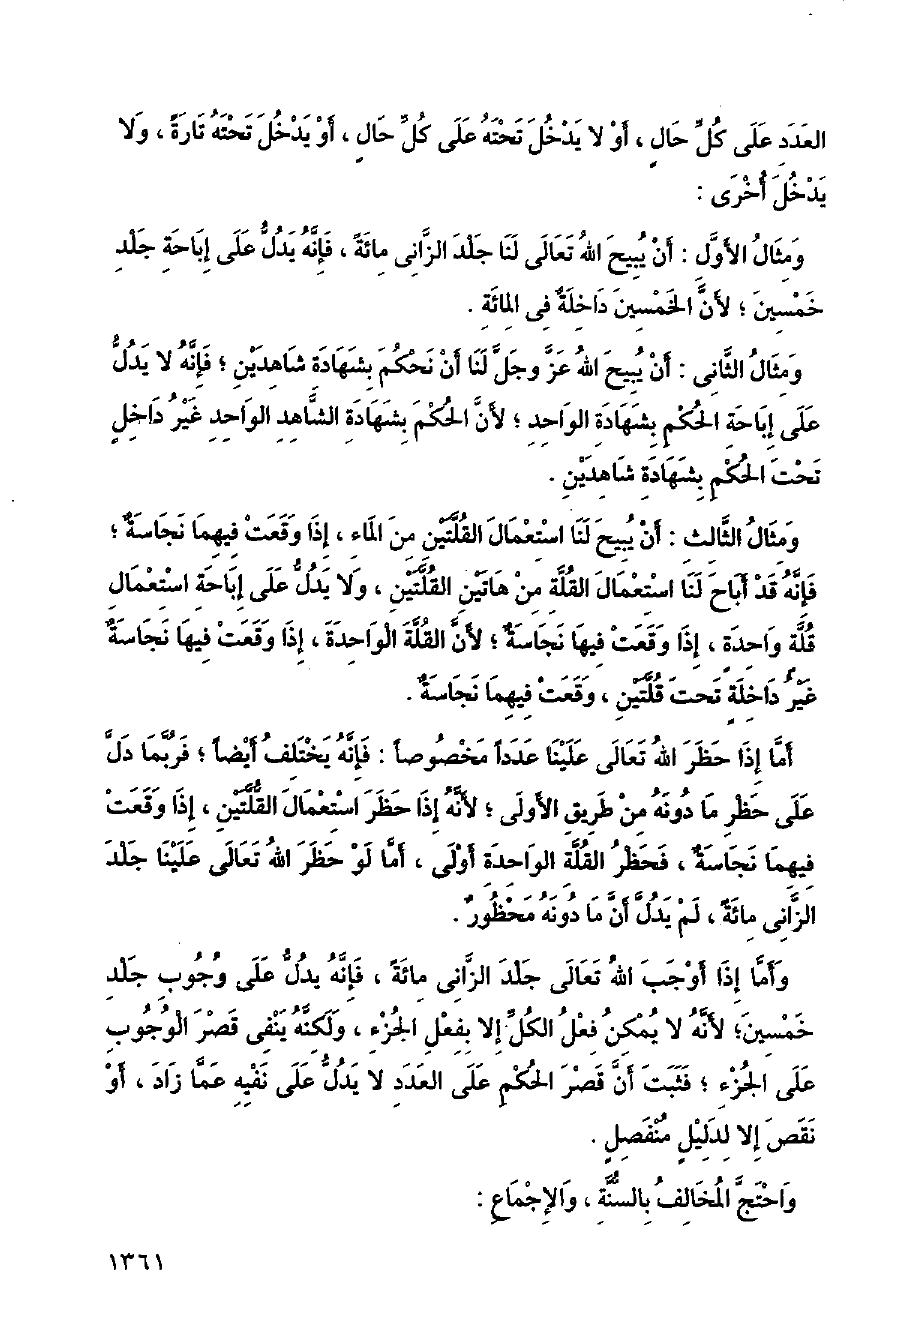 العَدَد عَلَى كُلِّ حَالٍ ، أَوْ لا يَدْخُلَ تَحْتَهُ عَلَى كُلِّ حَالٍ ، أَوْ يَدْخُلَ تَحْتَهُ تَارَةً ، وَلا
يَدْخُلَ أُخْرَى :
وَمِثَالُ الأَوَّلِ : أَنْ يُبِيحَ اللهُ تَعَالَى لَنَا جَلْدَ الزَّانِى مِائَةً ، فَإِنَّهُ يَدُلُّ عَلَى إِبَاحَةِ جَلْدِ
خَمْسِينَ ؛ لأَنَّ الخَمْسِينَ دَاخِلَةٌ فِى المِائَةِ .
وَمِثَالُ الثَّانِى : أَنْ يُبِيحَ اللهُ عَزَّ وجَلَّ لَنَا أَنْ نَحْكُمَ بِشَهَادَةِ شَاهِدَيْنِ ؛ فَإِنَّهُ لا يَدُلُّ
عَلَى إِبَاحَةِ الحُكْمِ بِشَهَادَةِ الوَاحِدِ ؛ لأَنَّ الحُكْمَ بِشَهَادَةِ الشَّاهِدِ الوَاحِدِ غَيْرُ دَاخِلٍ
تَحْتَ الحُكْمِ بِشَهَادَةِ شَاهِدَيْنِ .
وَمِثَالُ الثَّالِثِ : أَنْ يُبِيحَ لَنَا اسْتِعْمَالَ القُلَّتَيْنِ مِنَ المَاءِ ، إِذَا وَقَعَتْ فِيهِمَا نَجَاسَةٌ ؛
فَإِنَّهُ قَدْ أَبَاحَ لَنَا اسْتِعْمَالَ القُلَّةِ مِنْ هَاتَيْنِ القُلَّتَيْنِ ، وَلا يَدُلُّ عَلَى إِبَاحَةِ اسْتِعْمَالِ
قُلَّةٍ وَاحِدَةٍ ، إِذَا وَقَعَتْ فِيهَا نَجَاسَةٌ ؛ لأَنَّ القُلَّةَ الْوَاحِدَةَ ، إِذَا وَقَعَتْ فِيهَا نَجَاسَةٌ
غَيْرُ دَاخِلَةٍ تَحتَ قُلَّتَيْنِ ، وَقَعَتْ فِيهِمَا نَجَاسَةٌ .
أَمَّا إِذَا حَظَرَ اللهُ تَعَالَى عَلَيْنَا عَدَداً مَخْصُوصاً : فَإِنَّهُ يَخْتَلِفُ أَيْضاً ؛ فَرُبَّمَا دَلَّ
عَلَى حَظْرِ مَا دُونَهُ مِنْ طَرِيقِ الأَوْلَى ؛ لأَنَّهُ إِذَا حَظَرَ اسْتِعْمَالَ القُلَّتَيْنِ ، إِذَا وَقَعَتْ
فِيهِمَا نَجَاسَةٌ ، فَحَظْرُ القُلَّةِ الوَاحِدَةِ أَوْلَى ، أَمَّا لَوْ حَظَرَ اللهُ تَعَالَى عَلَيْنَا جَلْدَ
الزَّانِى مِائَةً ، لَمْ يَدُلَّ أَنَّ مَا دُونَهُ مَحْظُورٌ .
وَأَمَّا إِذَا أَوْجَبَ اللهُ تَعَالَى جَلْدَ الزَّانِى مِائَةً ، فَإِنَّهُ يدُلُّ عَلَى وُجُوبِ جَلْدِ
خَمْسِينَ؛ لأَنَّهُ لا يُمْكِنُ فِعْلُ الكُلِّ إِلا بِفِعْلِ الجُزْءِ ، وَلَكِنَّهُ يَنْفِى قَصْرَ الْوُجُوبِ
عَلَى الجُزْءِ ؛ فَثَبَتَ أَنَّ قَصْرَ الحُكْمِ عَلَى العَدَدِ لا يَدُلُّ عَلَى نَفْيِهِ عَمَّا زَادَ ، أَوْ
نَقَصَ إِلا لِدَلِيْلٍ مُنْفَصِلٍ .
وَاحْتَجَّ المُخَالِفُ بِالسُّنَّةِ ، وَالإِجْمَاعِ :
١٣٦١